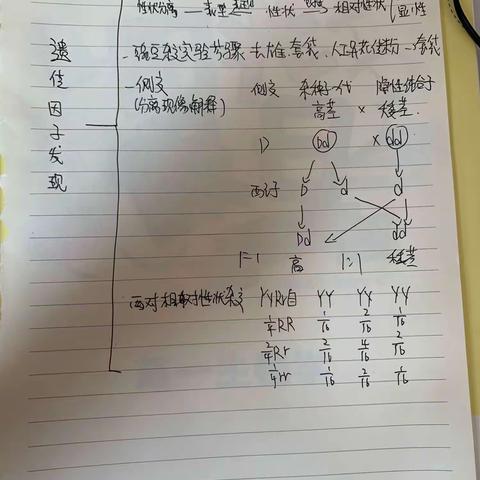 性状分离 — 表型 性状 — 相对性状 显性
遗传因子发现
- 豌豆杂交实验步骤 去雄.套袋.人工异花传粉-套袋
- 侧交 侧交 杂种一代 隐性纯合子
(分离现象解释) 高茎 × 矮茎.
D Dd × dd
配子 D d d
Dd dd
1=1 高 1:1 矮茎
两对相对性状杂交 YyRr自 YY Yy yy
1/4RR 1/16 2/16 1/16
2/4Rr 2/16 4/16 2/16
1/4rr 1/16 2/16 1/16